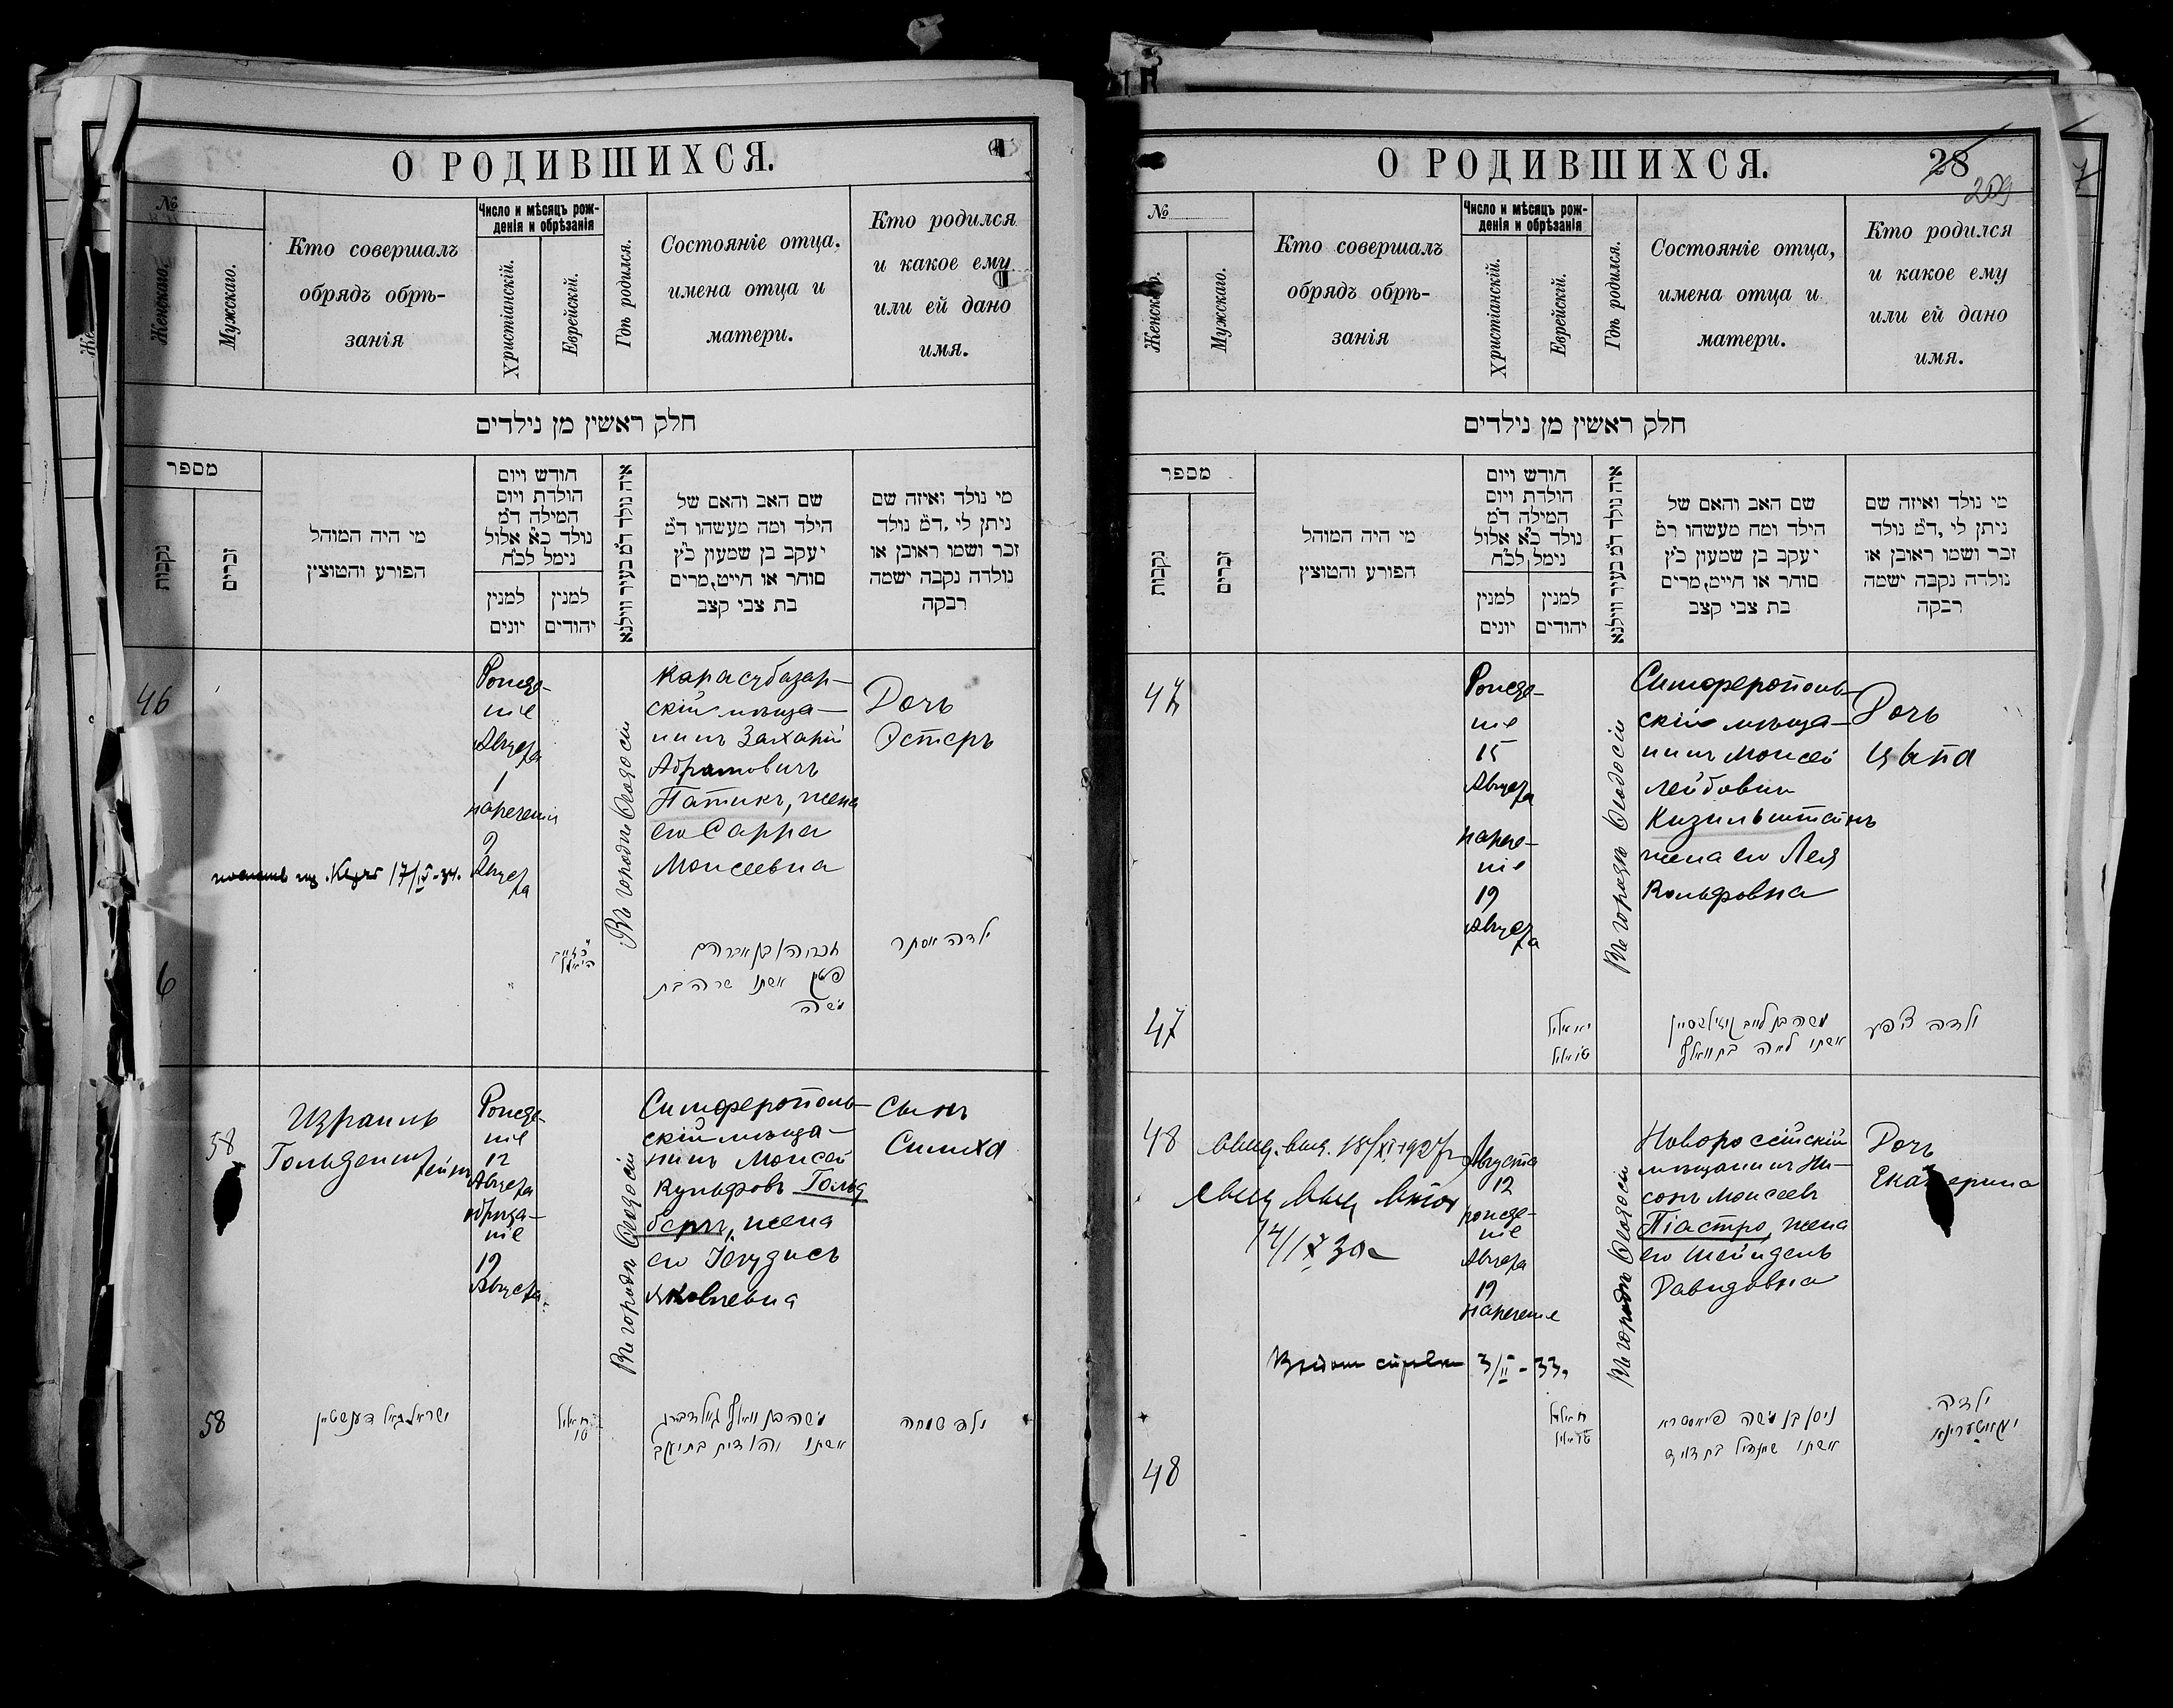 О РОДИВШИХСЯ.
№
Женскаго.
Мужскаго.
Кто совершалъ
обрядъ обрѣ-
занія
Число и мѣсяцъ рож-
денія и обрѣзанія
Христіанскій.
Еврейскій.
Гдѣ родился.
Состояніе отца.
имена отца и
матери.
Кто родился
и какое ему
или ей дано
имя.
חלק ראשין מן נילדים
מספר
נקבות
זכרים
מי היה המוהל
הפורע והטוצץ
חודש ויום
הולדת ויום
המילה ד״מ
נולד כ״א אלול
נימל לכ״ח
למנין
יונים
למנין
יהודים
איה נולד ד״מ בעיר ווילנא
שם האב והאם של
הילד ומה מעשהו ד״מ
יעקב בן שמעון כ״ץ
סוחר או חייט, מרים
בת צבי קצב
מי נולד ואיזה שם
ניתן לי, ד״מ נולד
זכר ושמו ראובן או
נולדה נקבה ישמה
רבקה
46
Рожде-
ніе
Августа
1
нареченія
9
Августа
17/IV-34.
Въ городѣ Ѳеодосіи
Карасубазар-
скій мѣща-
нинъ Захарій
Абрамовичъ
Патикъ, жена
его Сарра
Моисеевна
Дочь
Эстеръ
בן אברהם
אשתו שרה בת
משה
ילדה אסתר
6
58
Израиль
Гольденштейнъ
Рожде-
ніе
12
Августа
обрѣза-
ніе
19
Августа.
Въ городѣ Ѳеодосіи
Симферополь-
скій мѣща-
нинъ Моисей
Вульфовъ Гольд
бергъ, жена
его Іегудисъ
Яковлевна
Сынъ
Симха
58
משה בן וואלף גאלדבערג
אשתו יהודית בת יעקב
ילד שמחה
О РОДИВШИХСЯ.
28
209
№
Женскаго.
Мужскаго.
Кто совершалъ
обрядъ обрѣ-
занія
Число и мѣсяцъ рож-
денія и обрѣзанія
Христіанскій.
Еврейскій.
Гдѣ родился.
Состояніе отца,
имена отца и
матери.
Кто родился
и какое ему
или ей дано
имя.
חלק ראשין מן נילדים
מספר
נקבות
זכרים
מי היה המוהל
הפורע והטוצץ
חודש ויום
הולדת ויום
המילה ד״מ
נולד כ״א אלול
נימל לכ״ח
למנין
יונים
למנין
יהודים
איה נולד ד״מ בעיר ווילנא
שם האב והאם של
הילד ומה מעשהו ד״מ
יעקב בן שמעון כ״ץ
סוחר או חייט, מרים
בת צבי קצב
מי נולד ואיזה שם
ניתן לי, ד״מ נולד
זכר ושמו ראובן או
נולדה נקבה ישמה
רבקה
47
Рожде-
ніе
15
Августа
нарече-
ніе
19
Августа
Въ городѣ Ѳеодосіи
Симферополь-
скій мѣща-
нинъ Моисей
Лейбовичъ
Кизильштейнъ
жена его Лея
Вольфовна
Дочь
Ципа
47
משה בן לייב
אשתו לאה בת וואלף
ילדה ציפע
48
Августа
12
рожде-
ніе
Августа
19
нареченіе
3/II-33.
Въ городѣ Ѳеодосіи
Новороссійскій
мѣщанинъ Ни-
сонъ Моисеевъ
Піастро, жена
его Шейндель
Давидовна
Дочь
Екатерина
ניסן בן משה פיאסטרא
אשתו שיינדיל בת דוד
ילדה
יעקאטערינא
48